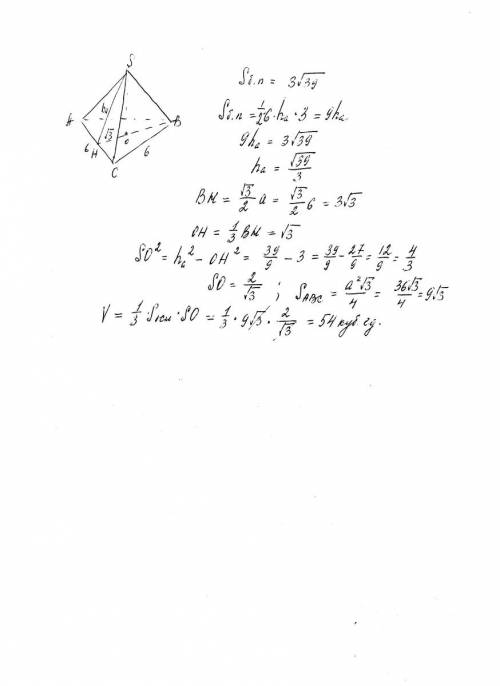 S
A
B
C
H
O
hа
√3
6
6
Sб.п = 3√39
Sб.п = 1/2 6 · hа · 3 = 9hа
9hа = 3√39
hа = √39/3
BH = √3/2 a = √3/2 6 = 3√3
OH = 1/3 BH = √3
SO² = hа² - OH² = 39/9 - 3 = 39/9 - 27/9 = 12/9 = 4/3
SO = 2/√3 ; SABC = a²√3/4 = 36√3/4 = 9√3
V = 1/3 · Sосн · SO = 1/3 · 9√3 · 2/√3 = 54 куб. ед.